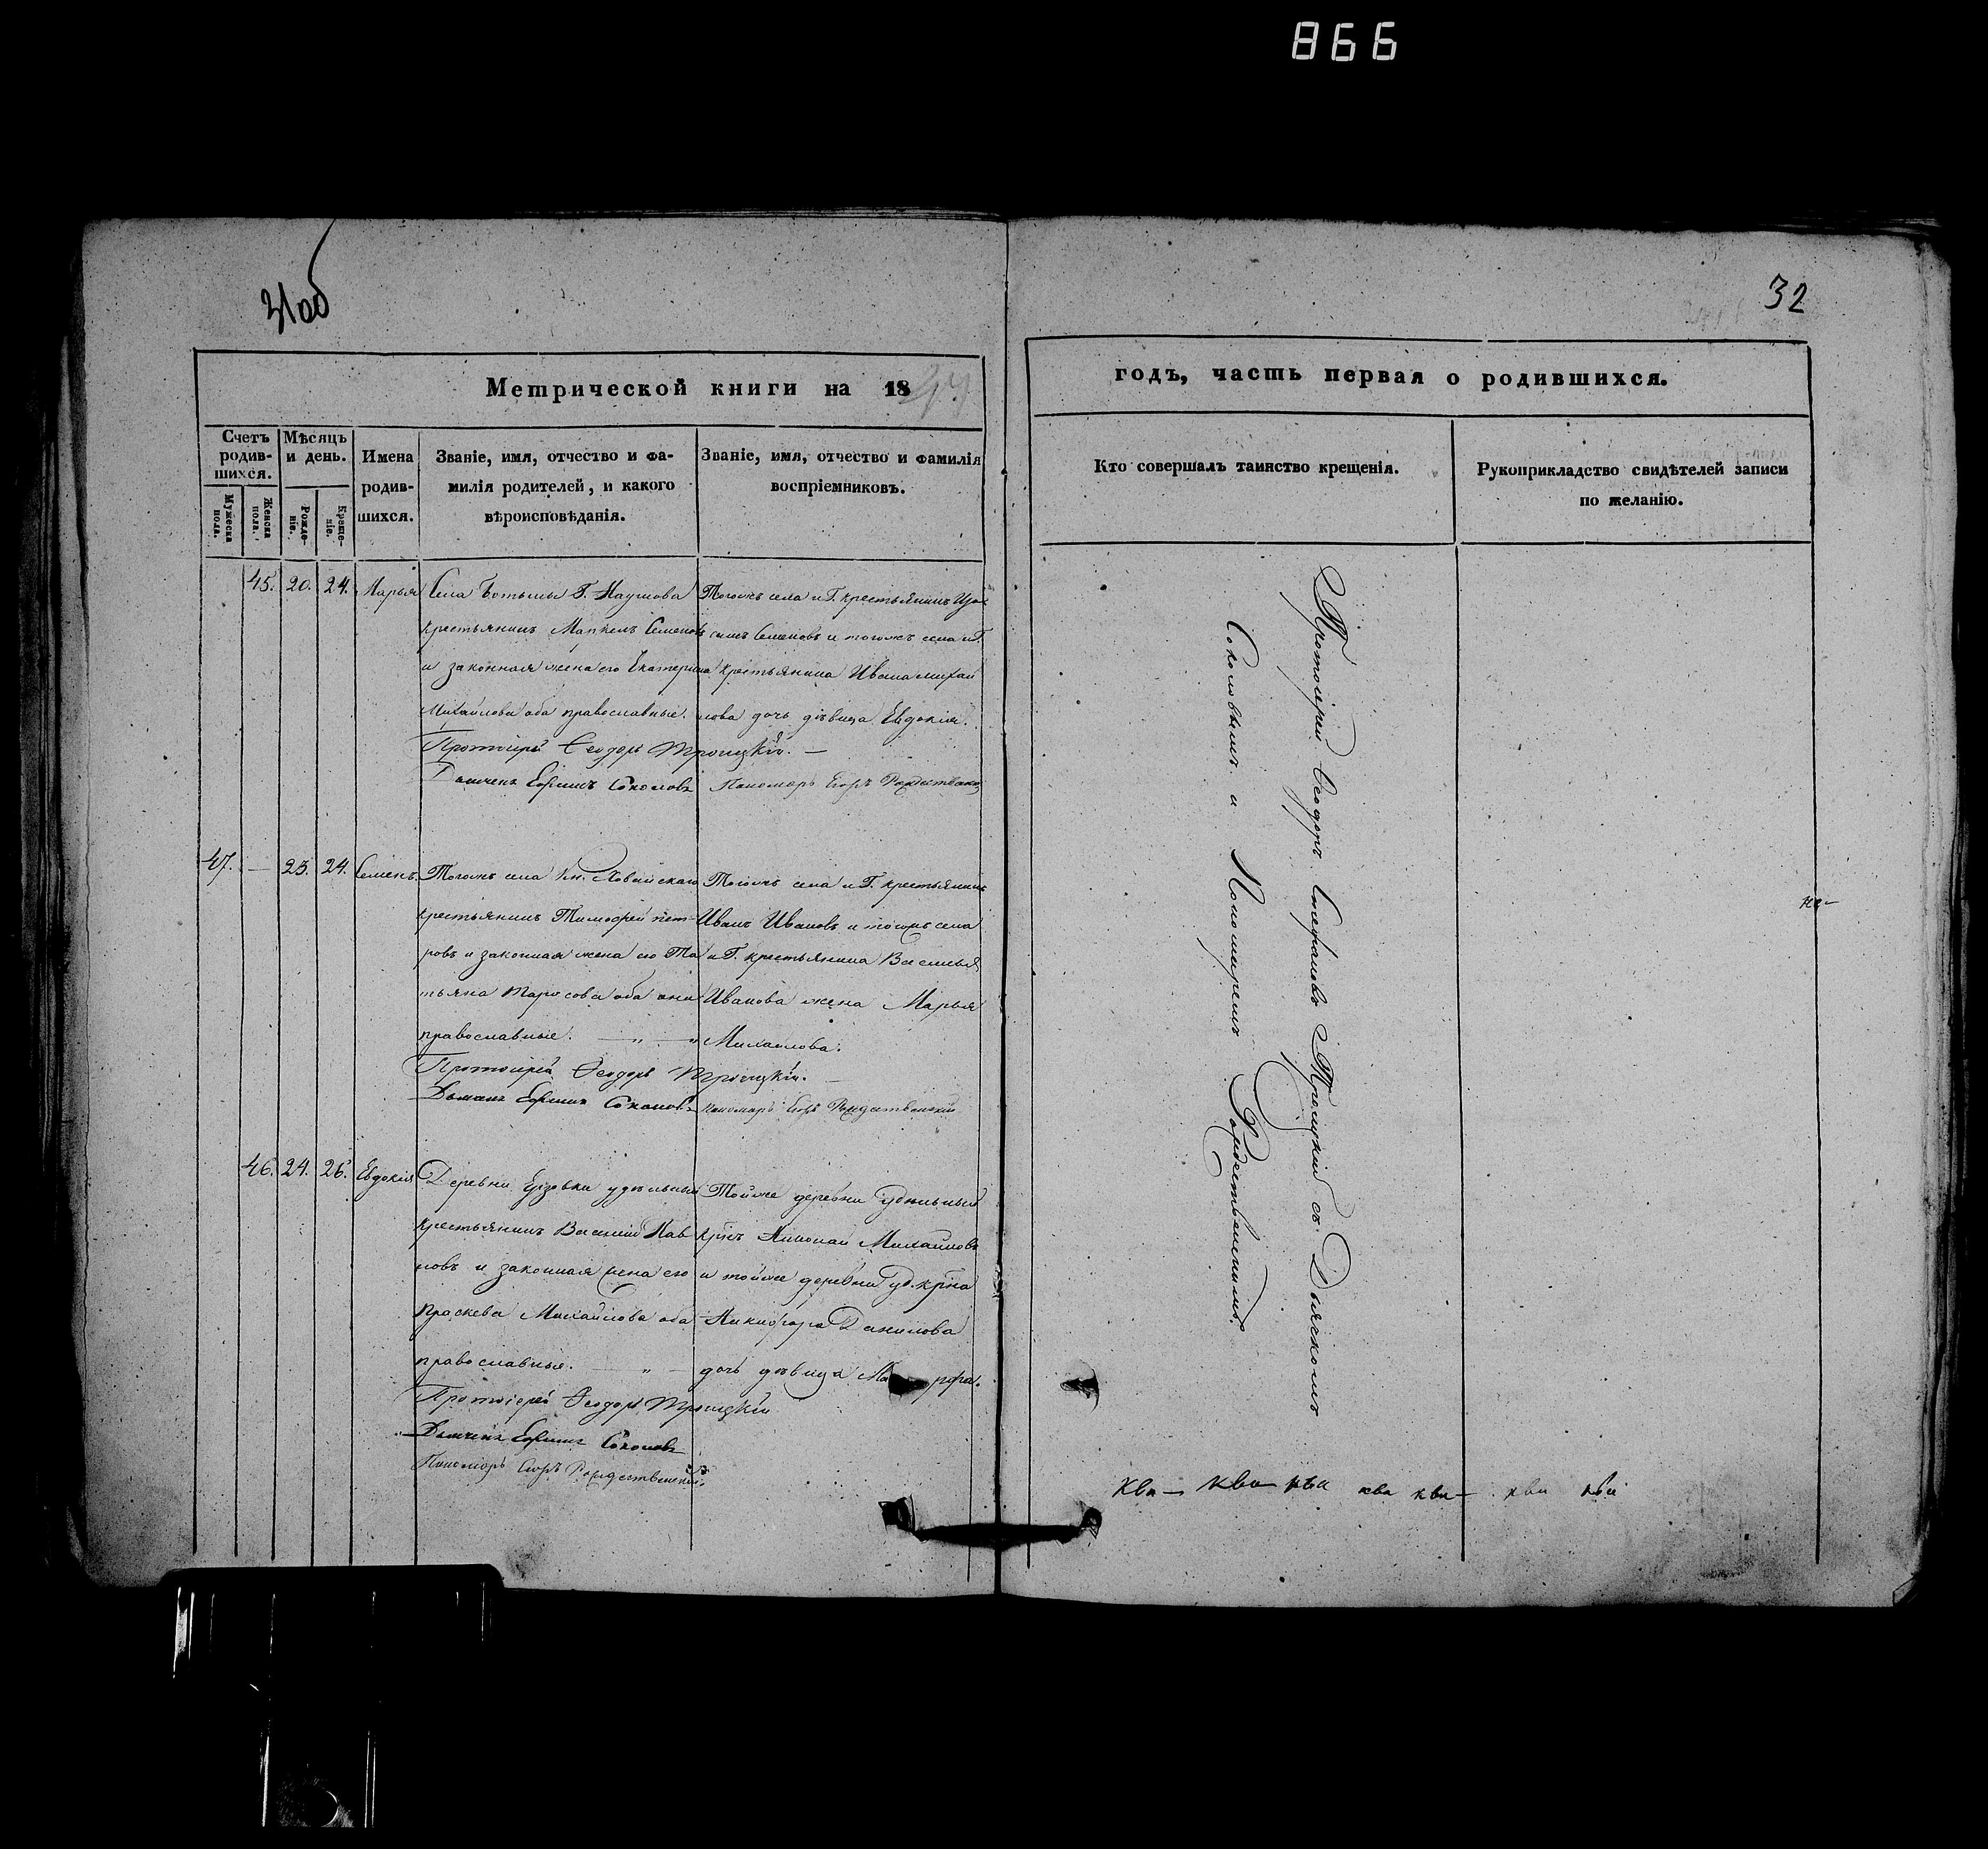 866
31об
32
Метрической книги на 18
годъ, часть первая о родившихся.
Счетъ родившихся.
Мѣсяцъ и день.
Имена родившихся.
Званіе, имя, отчество и фамилія родителей, и какого вѣроисповѣданія.
Званіе, имя, отчество и фамилія воспріемниковъ.
Кто совершалъ таинство крещенія.
Рукоприкладство свидѣтелей записи по желанію.
Мужеска пола.
Женска пола.
Рожденіе.
Крещеніе.
45. 20. 24. Марья
Села Ботьмы Г. Наумова
крестьянинъ Маркелъ Семеновъ
и законная жена его Екатерина
Михайлова оба православные.
Тогожъ села и Г. крестьянинъ
Семеновъ и тогожъ села и Г.
крестьянина Ивана Михай
лова дочь дѣвица Евдокія.
Протоіерей Ѳеодоръ Троицкій.
Дьячекъ Ефимъ Соколовъ
Пономарь Егоръ Рождественскій
47. — 23. 24. Семенъ.
Тогожъ села Кн. Хованскаго
крестьянинъ Тимофей Пет-
ровъ и законная жена его Та
тьяна Тарасова оба они
православные.
Тогожъ села и Г. крестьянинъ
Иванъ Ивановъ и тогожъ села
и Г. крестьянина Василья
Иванова жена Марья
Михайлова.
Протоіерей Ѳеодоръ Троицкій.
Дьячекъ Ефимъ Соколовъ
Пономарь Егоръ Рождественскій
46. 24. 26. Евдокія
Деревни удѣльный
крестьянинъ Василій Пав
ловъ и законная жена его
Праскева Михайлова оба
православные.
Тойже деревни удѣльный
крнъ Николай Михайловъ
и тойже деревни уд. крна
Никифора Данилова
дочь дѣвица Марфа.
Протоіерей Ѳеодоръ Троицкій
Дьячекъ Ефимъ Соколовъ
Пономарь Егоръ Рождественскій.
Протоіерей Ѳеодоръ Стефановъ Троицкій съ Дьячкомъ
Соколовымъ и Пономаремъ Рождественскимъ.
ква— ква— ква ква ква— ква ква